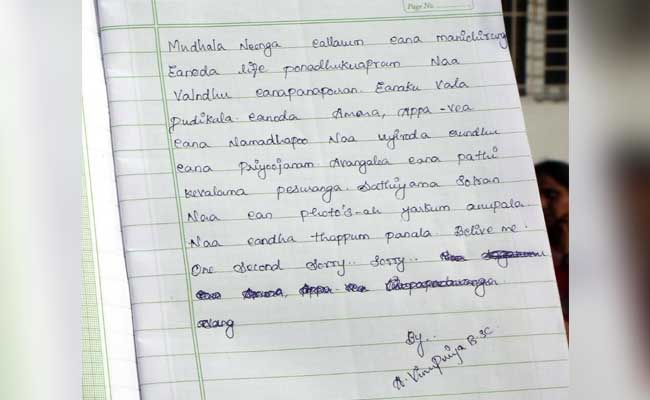 Page No.
Mudhala Neenga eallarum eana manichirung
Eanoda life ponadhukuapram Naa
Valndhu eanapanaporan. Eanaku Vala
Pudikala. eanoda Amma, Appa -vea
eana Namadhapoo Naa uyiroda eurndhu
eana Priyoojanam Avangalea eana pathi
kevalama pesuranga. Sathiyama Solran
Naa ean photo's-ah yarkum anupala
Naa eandha thappum panala. Belive me.
One Second Sorry.. Sorry..
solang
By..
A. Vinupriya B.SC.